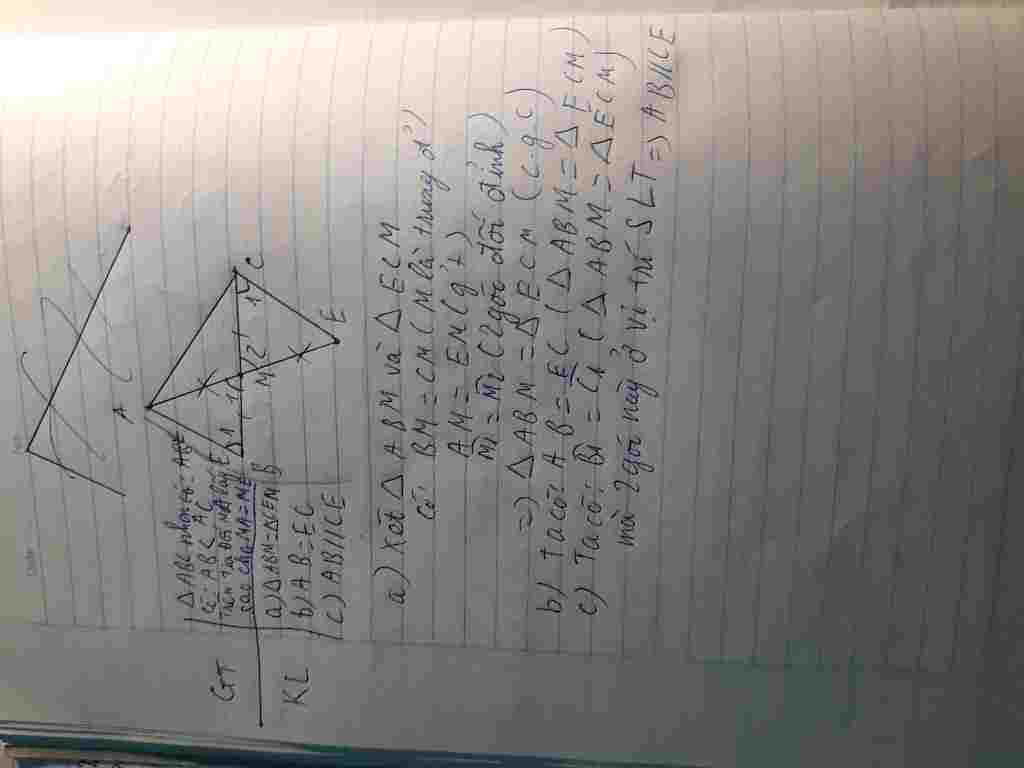 A
B
C
M
E
GT
Δ ABC
có: AB < AC
sao cho MA = ME
KL
a) ΔABM = ΔECM
b) AB = EC
c) AB // CE
a) Xét Δ ABM và Δ ECM
Có: BM = CM (M là trung đ')
AM = EM (gt)
M1 = M2 (2 góc đối đỉnh)
=> Δ ABM = Δ ECM (c.g.c)
b) Ta có: AB = EC (Δ ABM = Δ ECM)
c) Ta có: B1 = C1 (Δ ABM = Δ ECM)
mà 2 góc này ở vị trí SLT => AB//CE